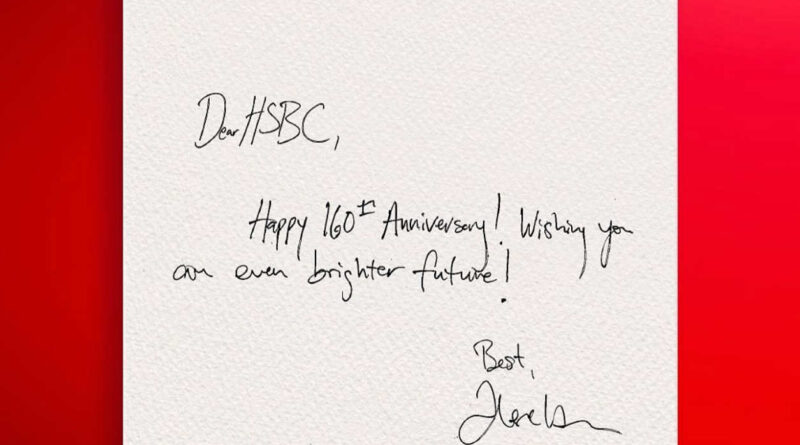 Dear HSBC,
Happy 160th Anniversary! Wishing you
an even brighter future!
Best,